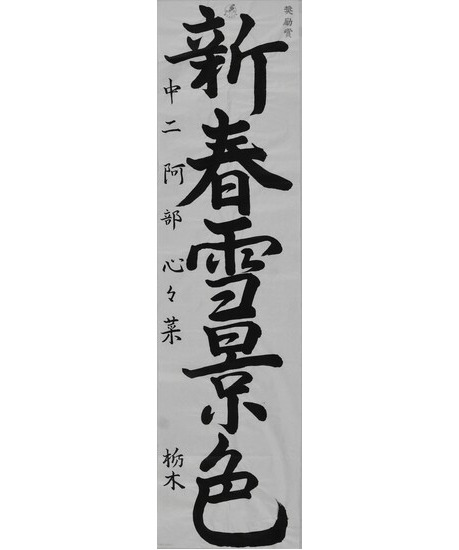 奨励賞
新春雪景色
中二 阿部 心々菜
栃木